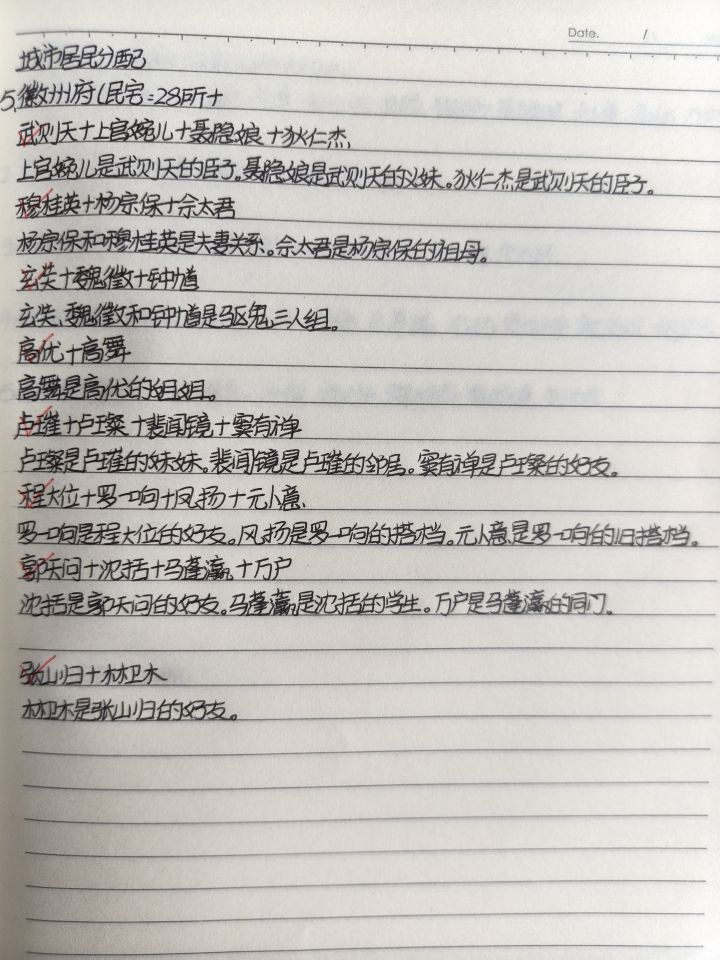 Date. /
城市居民分配
5.徽州府(民宅:28所+
武则天+上官婉儿+聂隐娘+狄仁杰
上官婉儿是武则天的臣子。聂隐娘是武则天的义妹。狄仁杰是武则天的臣子。
穆桂英+杨宗保+佘太君
杨宗保和穆桂英是夫妻关系。佘太君是杨宗保的祖母。
玄奘+魏徵+钟馗
玄奘、魏徵和钟馗是驱鬼三人组。
高优+高舞
高舞是高优的姐姐。
卢璀+卢璨+裴闻镜+窦有禅
卢璨是卢璀的妹妹。裴闻镜是卢璀的邻居。窦有禅是卢璨的好友。
程大位+罗一响+风扬+元小意
罗一响是程大位的好友。风扬是罗一响的搭档。元小意是罗一响的旧搭档。
郭天问+沈括+马蓬瀛+万户
沈括是郭天问的好友。马蓬瀛是沈括的学生。万户是马蓬瀛的同门。
张山归+林卫木
林卫木是张山归的好友。